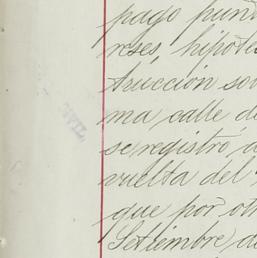 pago pun
reses, hipote
trucción so
ma calle d
se registró a
vuelta del
que por ot
Setiembre d